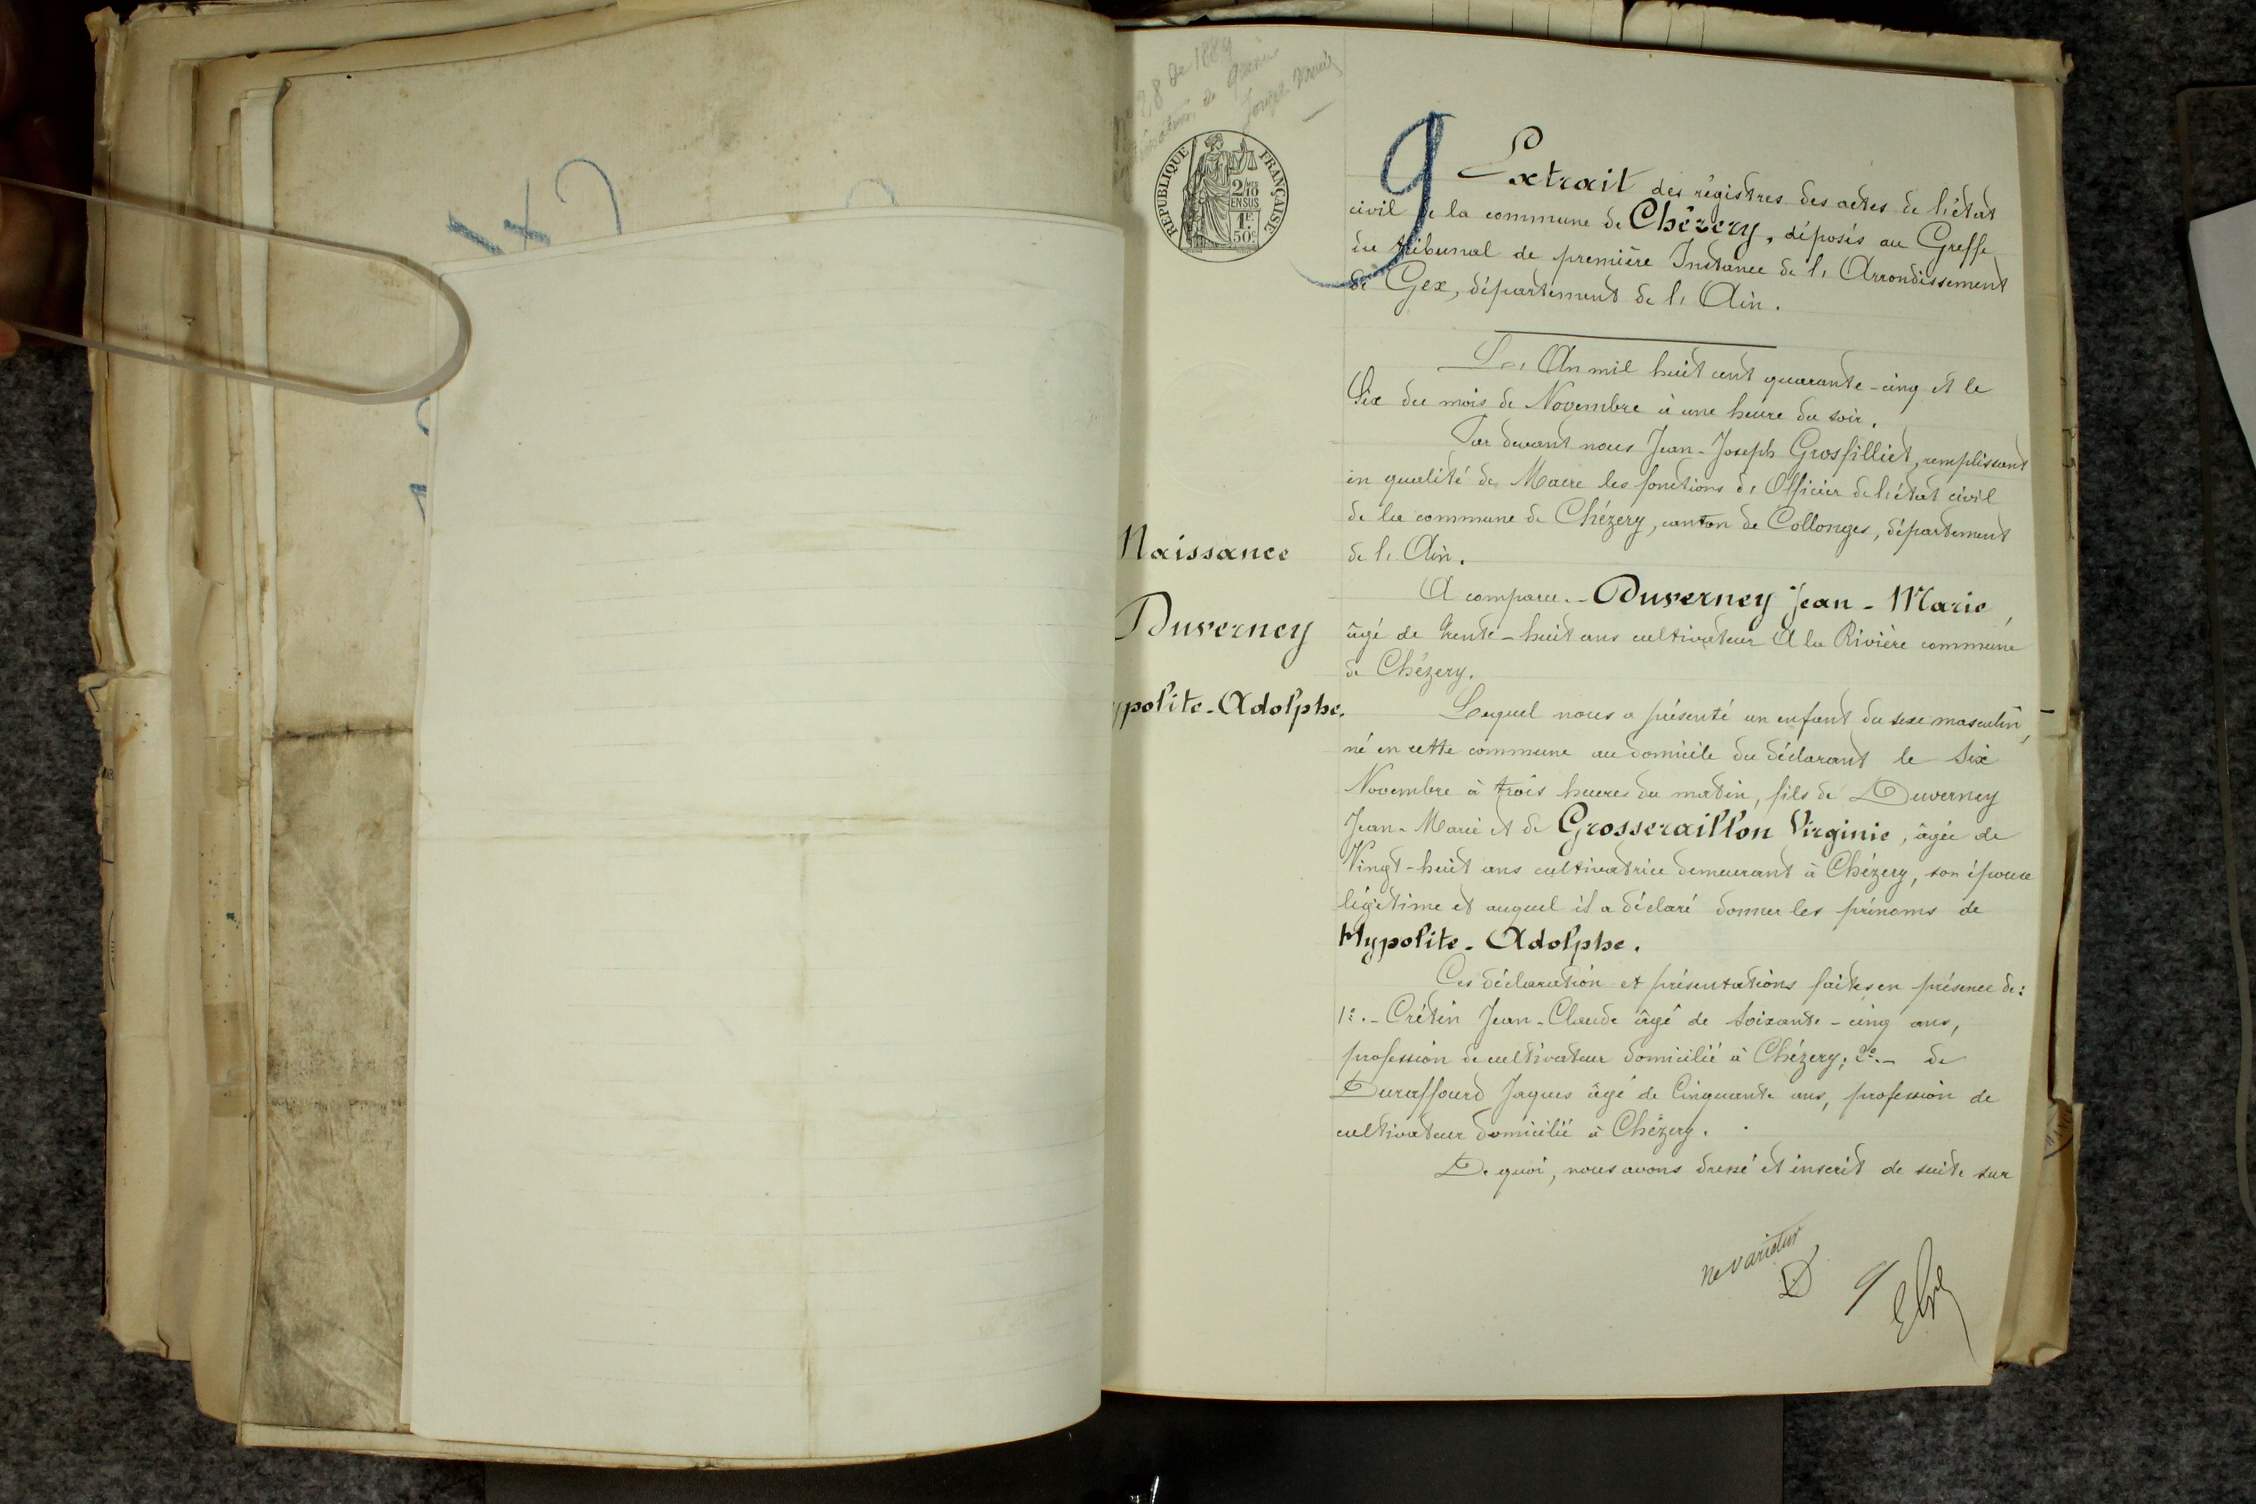 28 de 1889
RÉPUBLIQUE FRANÇAISE
2/10
EN SUS
1F.
50c
9
Extrait des régistres des actes de l'état
civil de la commune de Chézery, déposés au Greffe
du tribunal de première Instance de l'Arrondissement
de Gex, département de l'Ain.
L'An mil huit cent quarante-cinq et le
Six du mois de Novembre à une heure du soir.
Par devant nous Jean-Joseph Grosfilliet, remplissant
en qualité de Maire les fonctions d'Officier de l'état civil
de la commune de Chézery, canton de Collonges, département
de l'Ain.
Naissance
Duverney
ypolite-Adolphe.
A comparu.- Duverney Jean-Marie,
âgé de trente-huit ans cultivateur A la Rivière commune
de Chézery.
Lequel nous a présenté un enfant du sexe masculin,
né en cette commune au domicile du déclarant le Six
Novembre à trois heures du matin, fils de Duverney
Jean-Marie et de Grosseraillon Virginie, âgée de
Vingt-huit ans cultivatrice demeurant à Chézery, son épouse
légitime et auquel il a déclaré donner les prénoms de
Hypolite-Adolphe.
Ces déclaration et présentations faites en présence de:
1º.- Crétin Jean-Claude âgé de Soixante-cinq ans,
profession de cultivateur domicilié à Chézery; 2º.- de
Duraffourd Jaques âgé de Cinquante ans, profession de
cultivateur domicilié à Chézery.
De quoi, nous avons dressé et inscrit de suite sur
ne varietur
9